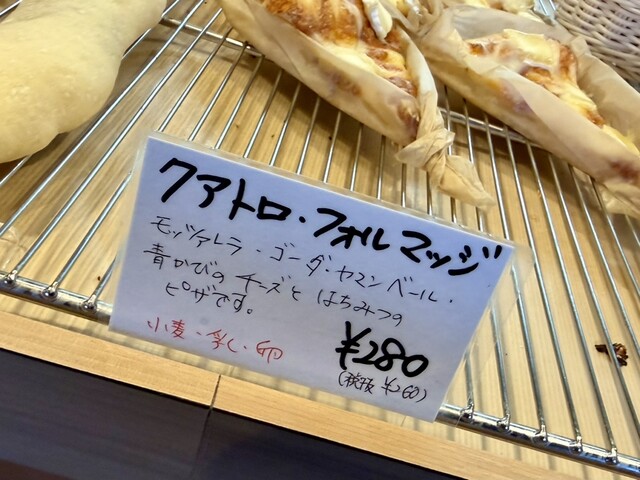 クアトロ・フォルマッジ
モッツァレラ・ゴーダ・ヤマンベール・
青かびの チーズと はちみつの
ピザです。
小麦・乳・卵
¥280
(税抜 ¥260)